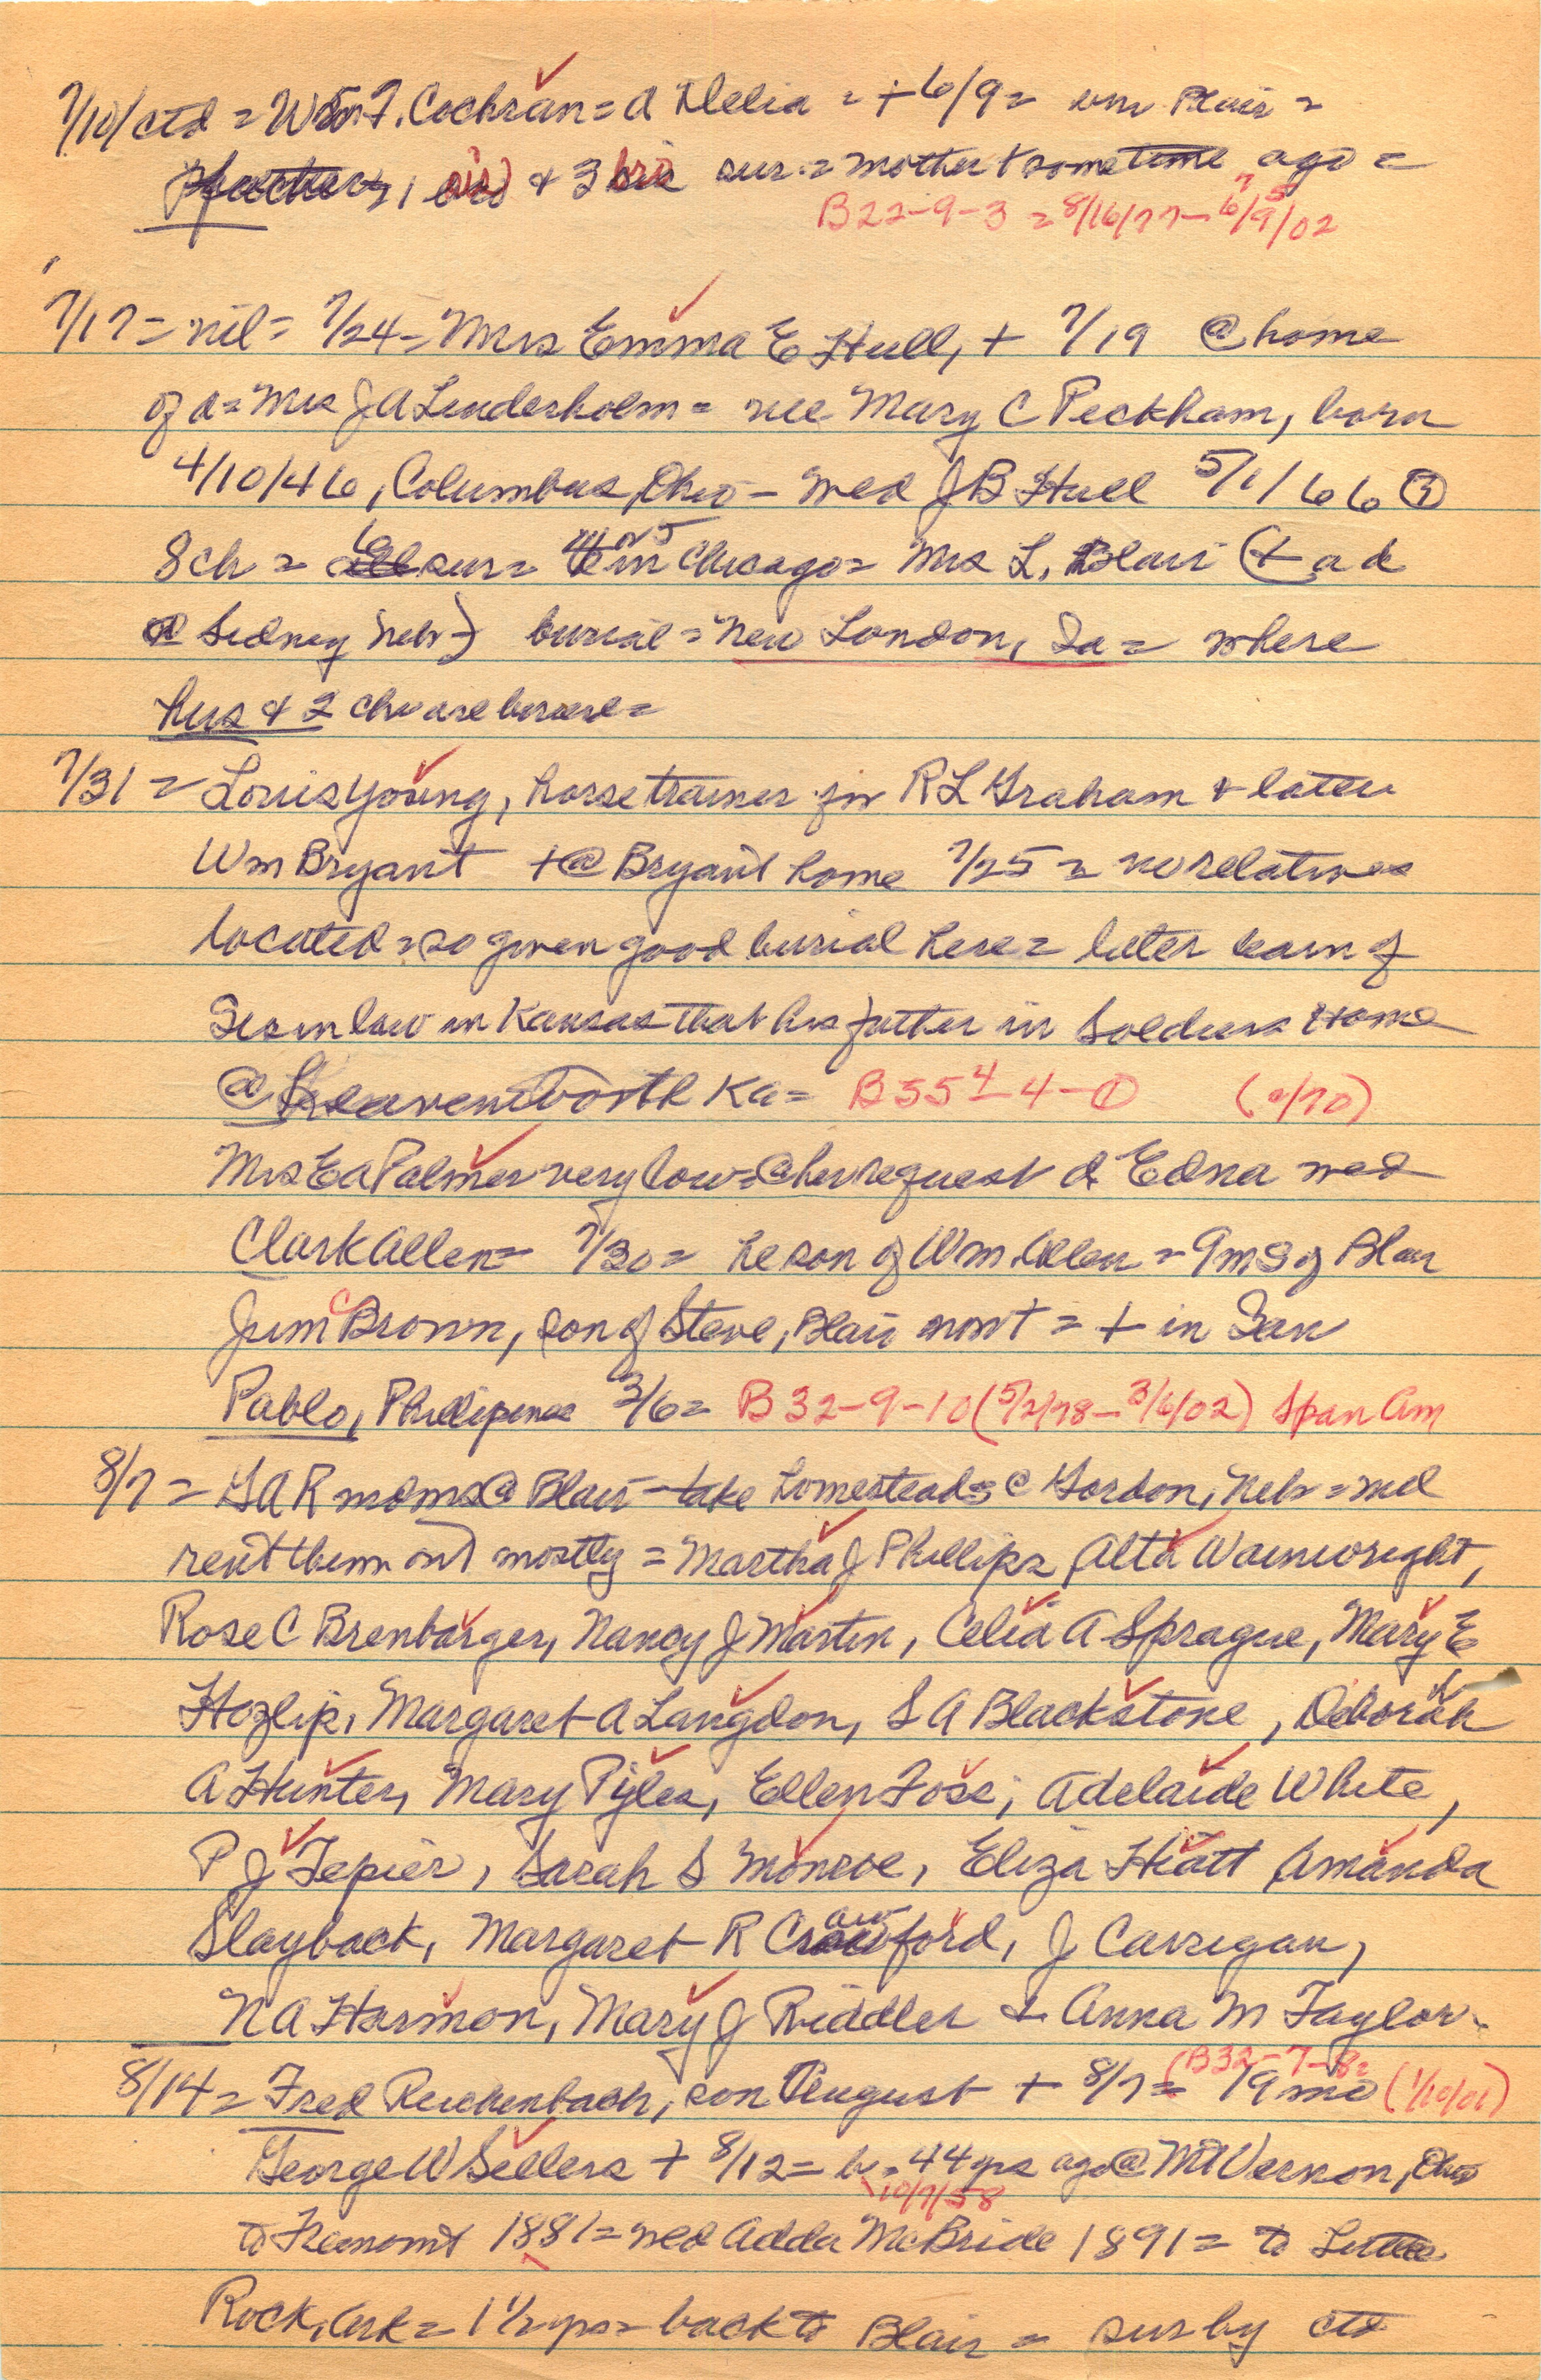 7/10/ctd = Wm F. Cochran = d Delia = + 6/9 = wm Blair =
father, 1 sis & 3 bro sur. = mother + sometime ago =
B22-9-3 = 8/16/77 - 6/9/02
7/17 = nil = 7/24 = Mrs Emma E Hull, + 7/19 @ home
of d = Mrs J A Linderholm = nee Mary C Peckham, born
4/10/46, Columbus, Ohio - wed J B Hull 5/1/66
8 ch = 6 sur = in Chicago = Mrs L. Blair (+ a d
@ Sidney Nebr) burial = New London, Ia = where
hus & 2 ch are buried =
7/31 = Louis Young, horse trainer for R L Graham & later
Wm Bryant + @ Bryant home 7/25 = no relatives
located = so given good burial here = later learn of
Sis in law in Kansas that his father in Soldiers Home
@ Leavenworth Ka = B 55 4-4-1 (0/70)
Mrs E A Palmer very low = @ her request d Edna wed
Clark Allen = 7/30 = he son of Wm Allen = 9 m S of Blair
Jim C Brown, son of Steve, Blair mont = + in San
Pablo, Phillipines 3/6 = B 32-9-10 (5/2/78 - 3/6/02) Span Am
8/7 = G A R mdms @ Blair - take homesteads @ Gordon, Nebr =
rent them out mostly = Martha J Phillips, Alta Wainwright,
Rose C Brenbarger, Nancy J Martin, Celia A Sprague, Mary E
Hozlip, Margaret A Langdon, S A Blackstone, Deborah
A Hunter, Mary Pyles, Ellen Foss, Adelaide White,
P J Tepier, Sarah S Monroe, Eliza Hiatt, Amanda
Slayback, Margaret R Crawford, J Carrigan,
N A Harmon, Mary J Riddler & Anna M Taylor.
8/14 = Fred Reichenbach, son August + 8/7 = 19 mo (B32-7-8 = (1/10/01)
George W Sellers + 8/12 = b. 44 yrs ago @ Mt Vernon, Ohio
10/7/58
to Fremont 1881 = wed Adda McBride 1891 = to Little
Rock, Ark = 1 1/2 yrs = back to Blair = sur by ctd